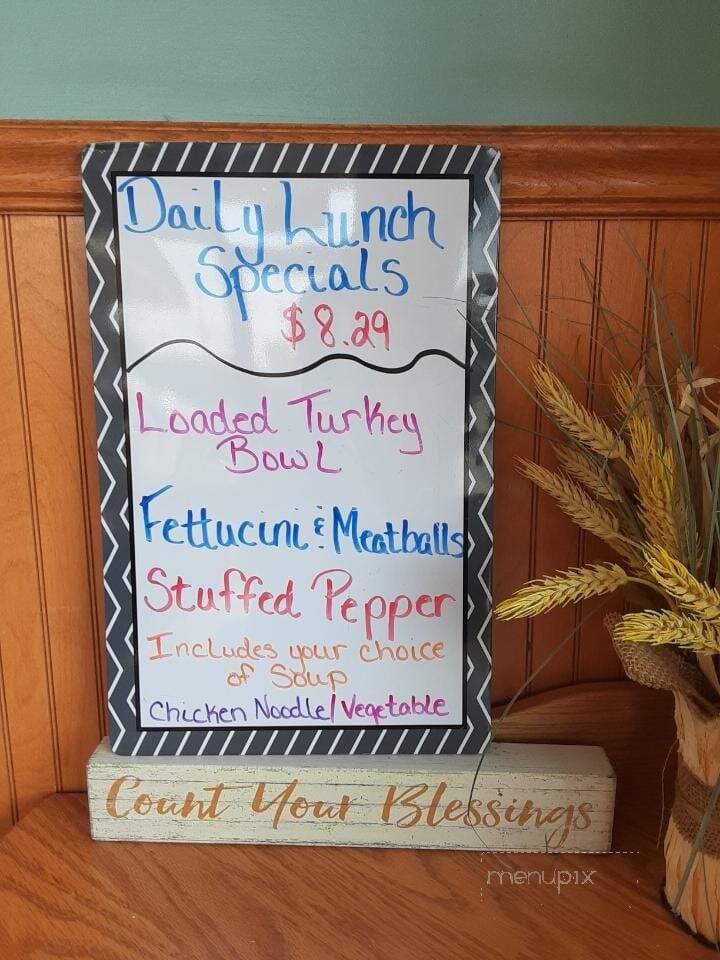 Daily Lunch
Specials
$8.29
Loaded Turkey
Bowl
Fettucini & Meatballs
Stuffed Pepper
Includes your choice
of Soup
Chicken Noodle/Vegetable
Count Your Blessings
menupix